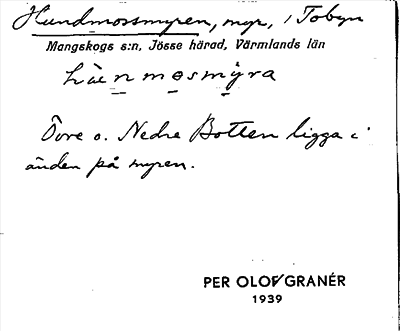 Hundmossmyren, myr, i Tobyn
Mangskogs s:n, Jösse härad, Värmlands län
hùnmosmỳra
Övre o. Nedre Botten ligga i
änden på myren.
PER OLOV GRANÉR
1939